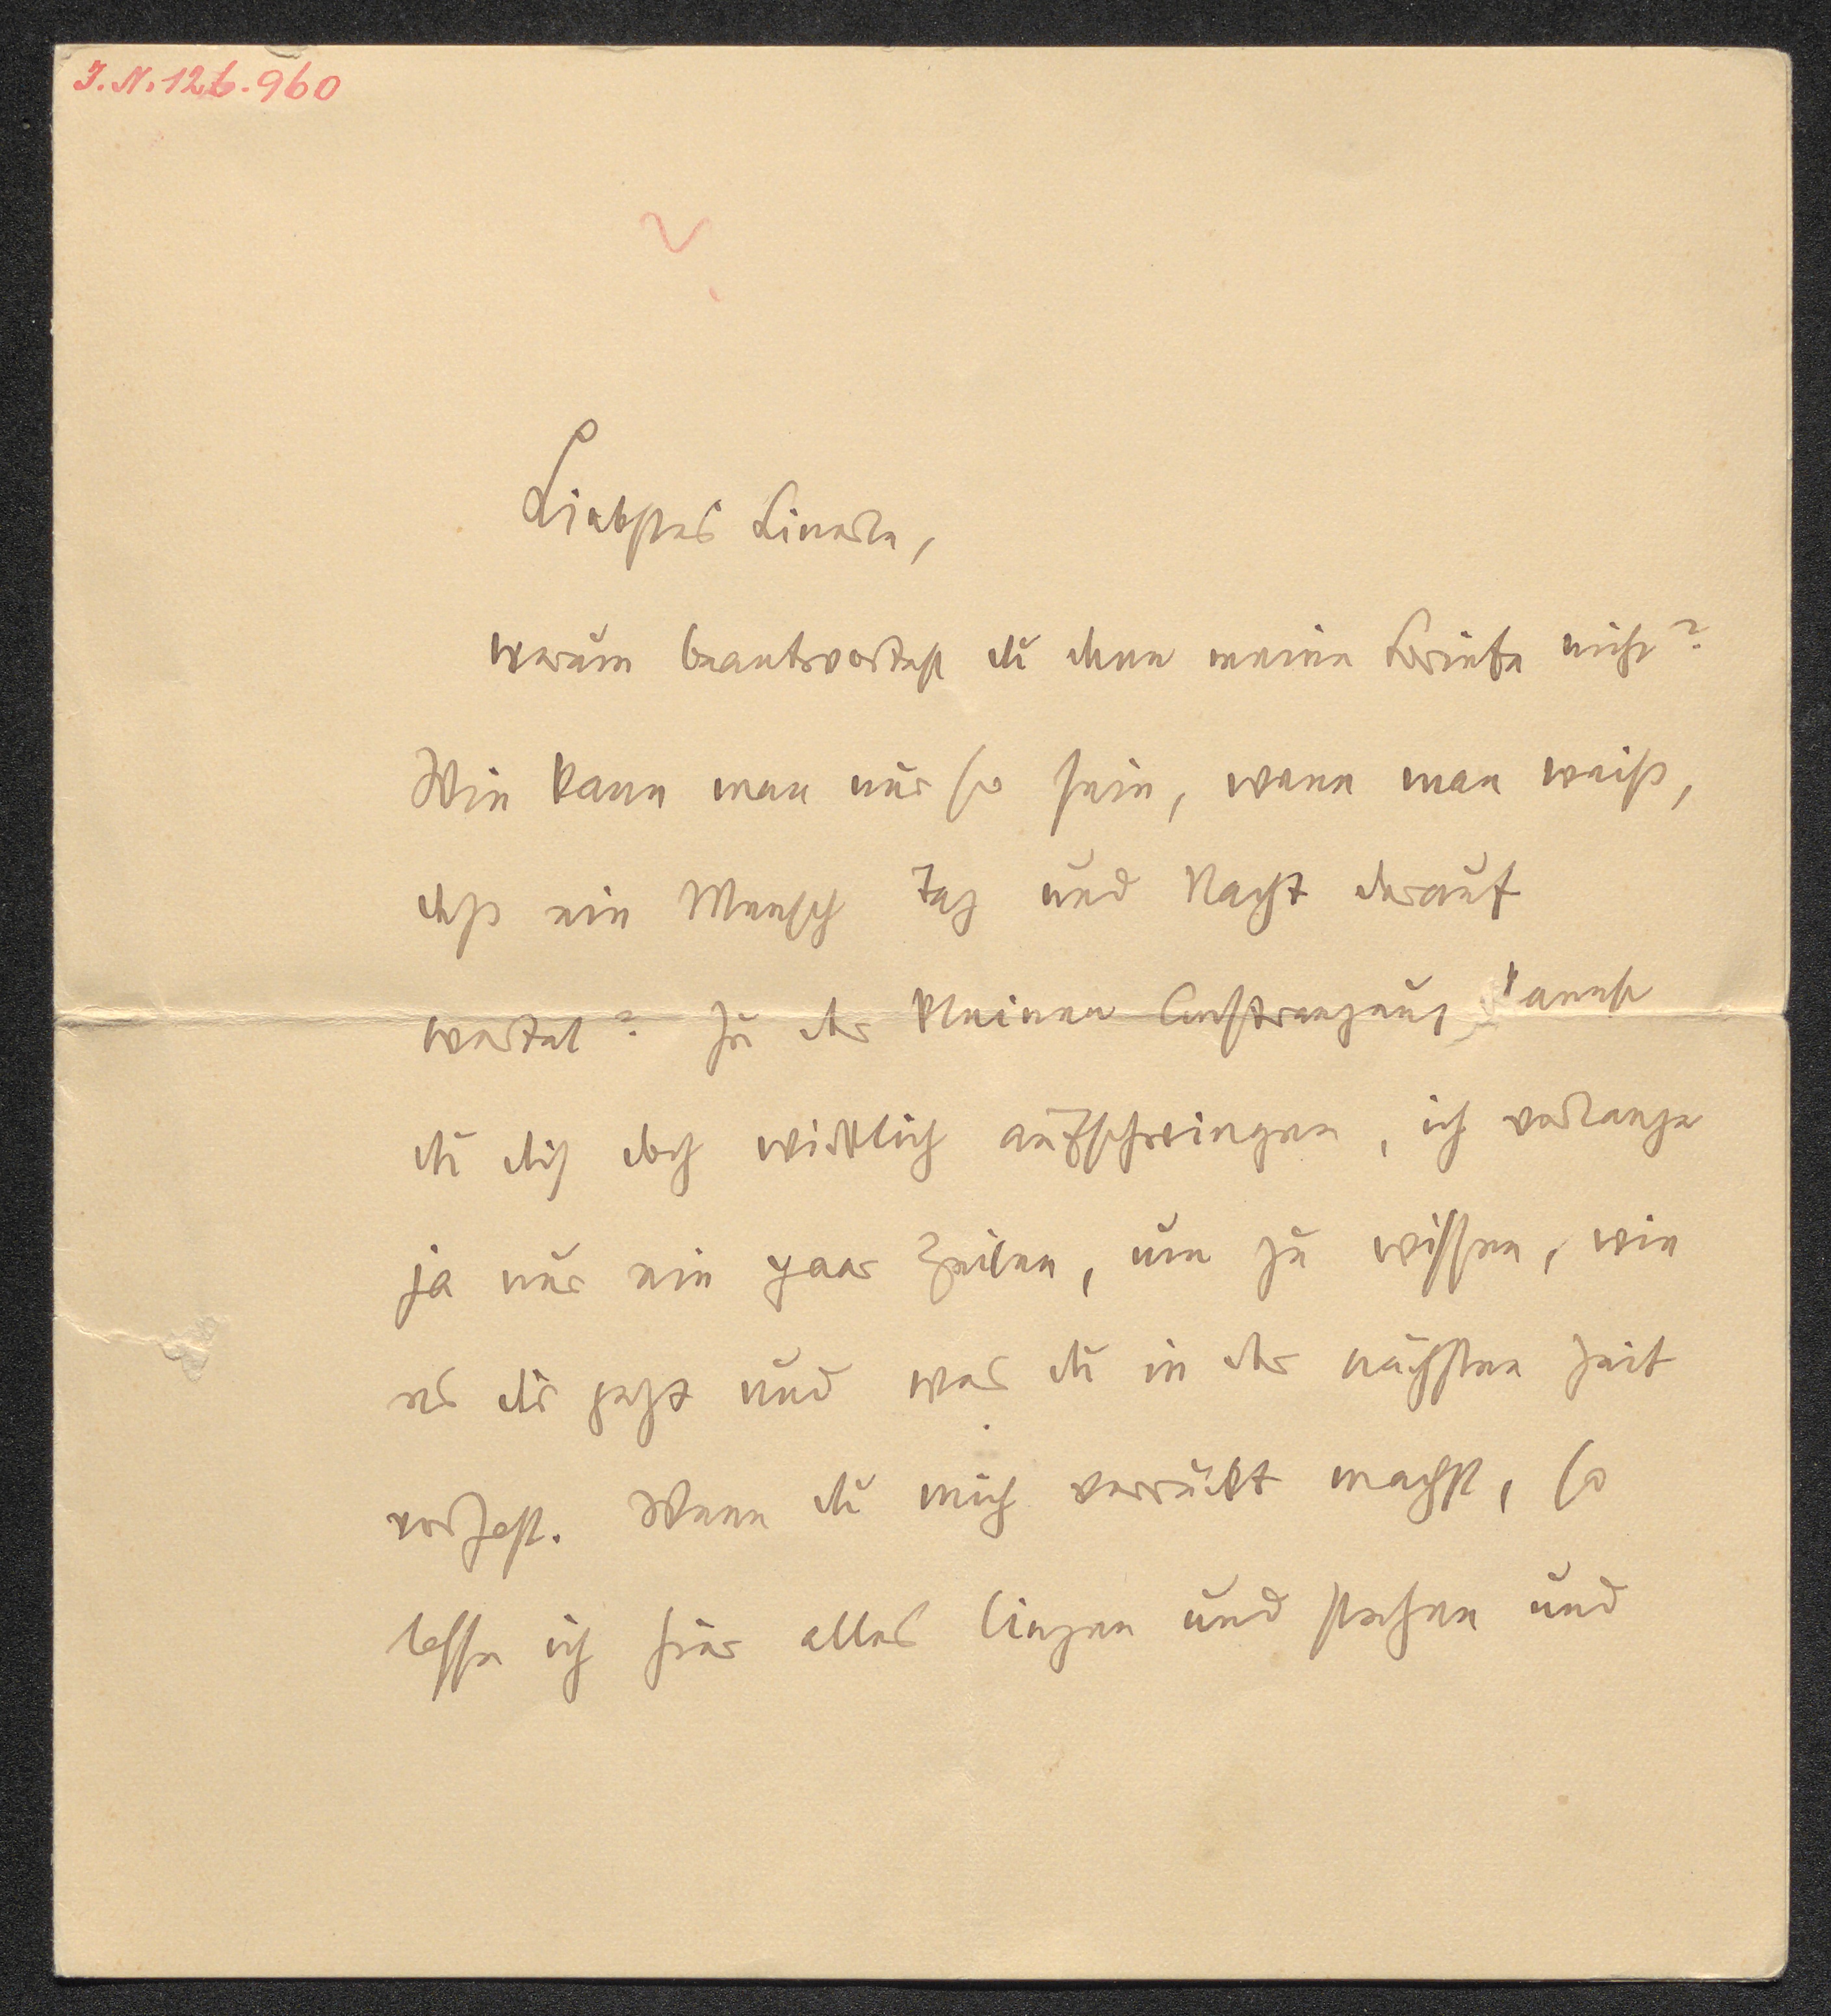 I. N. 126.960
Liebstes Linerle,
warum beantwortest du denn meine Briefe nicht?
Wie kann man nur so sein, wenn man weiß,
daß ein Mensch Tag und Nacht darauf
wartet? Zu der kleinen Anstrengung kannst
du dich doch wirklich aufschwingen, ich verlange
ja nur ein paar Zeilen, um zu wissen, wie
es dir geht und was du in der nächsten Zeit
vorhast. Wenn du mich verrückt machst, so
lasse ich hier alles liegen und stehen und